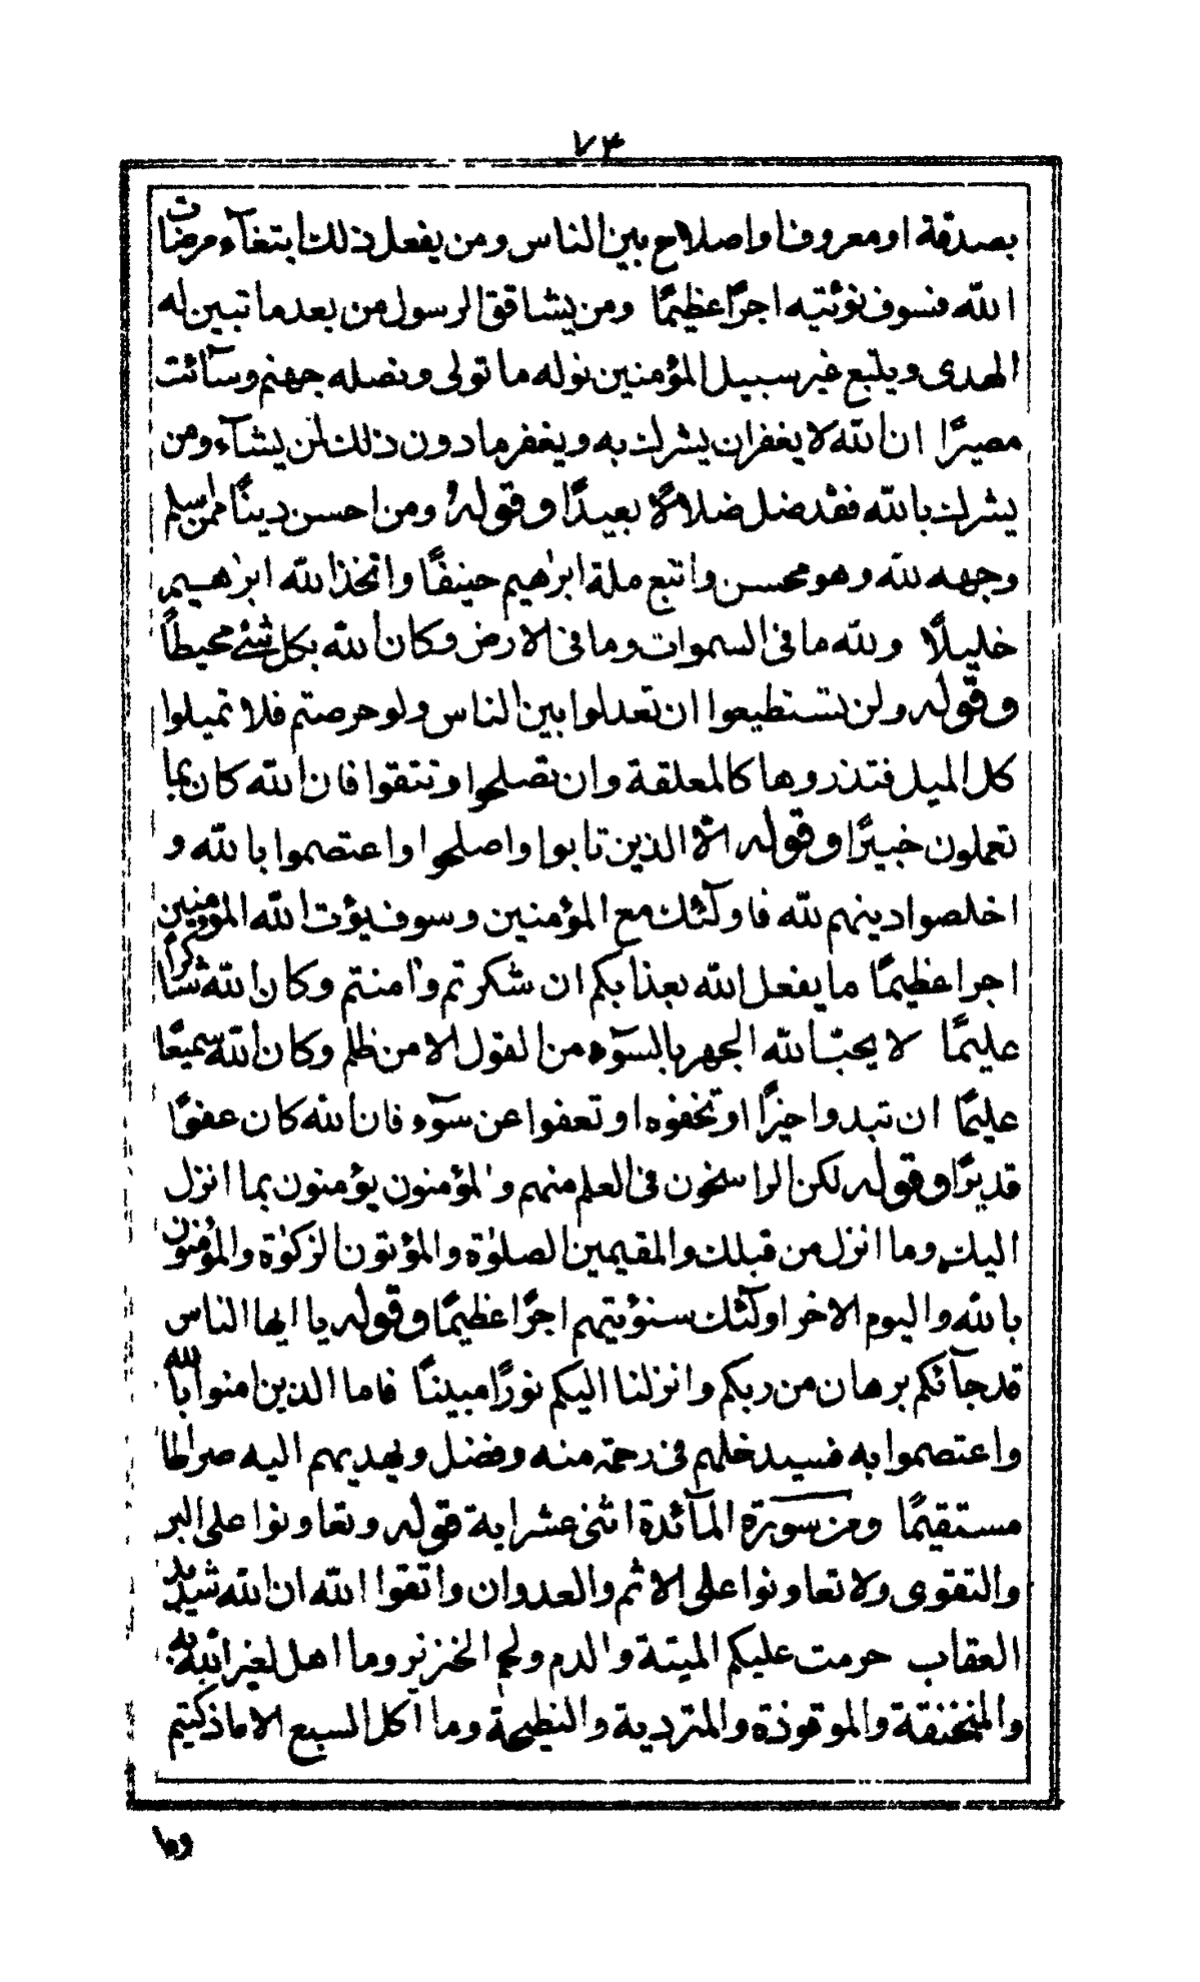 ٧٤
بصدقة او معروف او اصلاح بين الناس ومن يفعل ذلك ابتغآء مرضات
الله فسوف نؤتيه اجرًا عظيمًا ومن يشاقق الرسول من بعد ما تبين له
الهدى ويتبع غير سبيل المؤمنين نوله ما تولى ونصله جهنم وسآئت
مصيرًا ان الله لا يغفر ان يشرك به ويغفر ما دون ذلك لمن يشآء ومن
يشرك بالله فقد ضل ضلالًا بعيدًا وقوله ومن احسن دينًا ممن اسلم
وجهه لله وهو محسن واتبع ملة ابرٰهيم حنيفًا واتخذ الله ابرٰهيم
خليلًا ولله ما فى السموات وما فى الارض وكان الله بكل شئ محيطًا
وقوله ولن تستطيعوا ان تعدلوا بين الناس ولو حرصتم فلا تميلوا
كل الميل فتذروها كالمعلقة وان تصلحوا وتتقوا فان الله كان بما
تعملون خبيرًا وقوله الّا الذين تابوا واصلحوا واعتصموا بالله و
اخلصوا دينهم لله فاولٓئك مع المؤمنين وسوف يؤت الله المؤمنين
اجرا عظيمًا ما يفعل الله بعذابكم ان شكرتم وٰامنتم وكان الله شاكرًا
عليمًا لا يحبّ الله الجهر بالسوٓء من القول الا من ظلم وكان الله سميعًا
عليمًا ان تبدوا خيرًا او تخفوه او تعفوا عن سوٓء فان الله كان عفوًا
قديرًا وقوله لكن الراسخون فى العلم منهم والمؤمنون يؤمنون بما انزل
اليك وما انزل من قبلك والمقيمين الصلوٰة والمؤتون الزكوٰة والمؤمنون
بالله واليوم الاخر اولٓئك سنؤتيهم اجرًا عظيمًا وقوله يا ايها الناس
قد جآئكم برهان من ربكم وانزلنا اليكم نورًا مبينًا فاما الذين امنوا بالله
واعتصموا به فسيدخلهم فى رحمة منه وفضل ويهديهم اليه صراطا
مستقيمًا ومن سورة المآئدة اثنى عشر اية قوله وتعاونوا على البر
والتقوى ولا تعاونوا على الاثم والعدوان واتقوا الله ان الله شديد
العقاب حرمت عليكم الميتة والدم ولحم الخنزير وما اهل لغير الله به
والمنخنقة والموقوذة والمتردية والنطيحة وما آكل السبع الا ما ذكيتم
وما